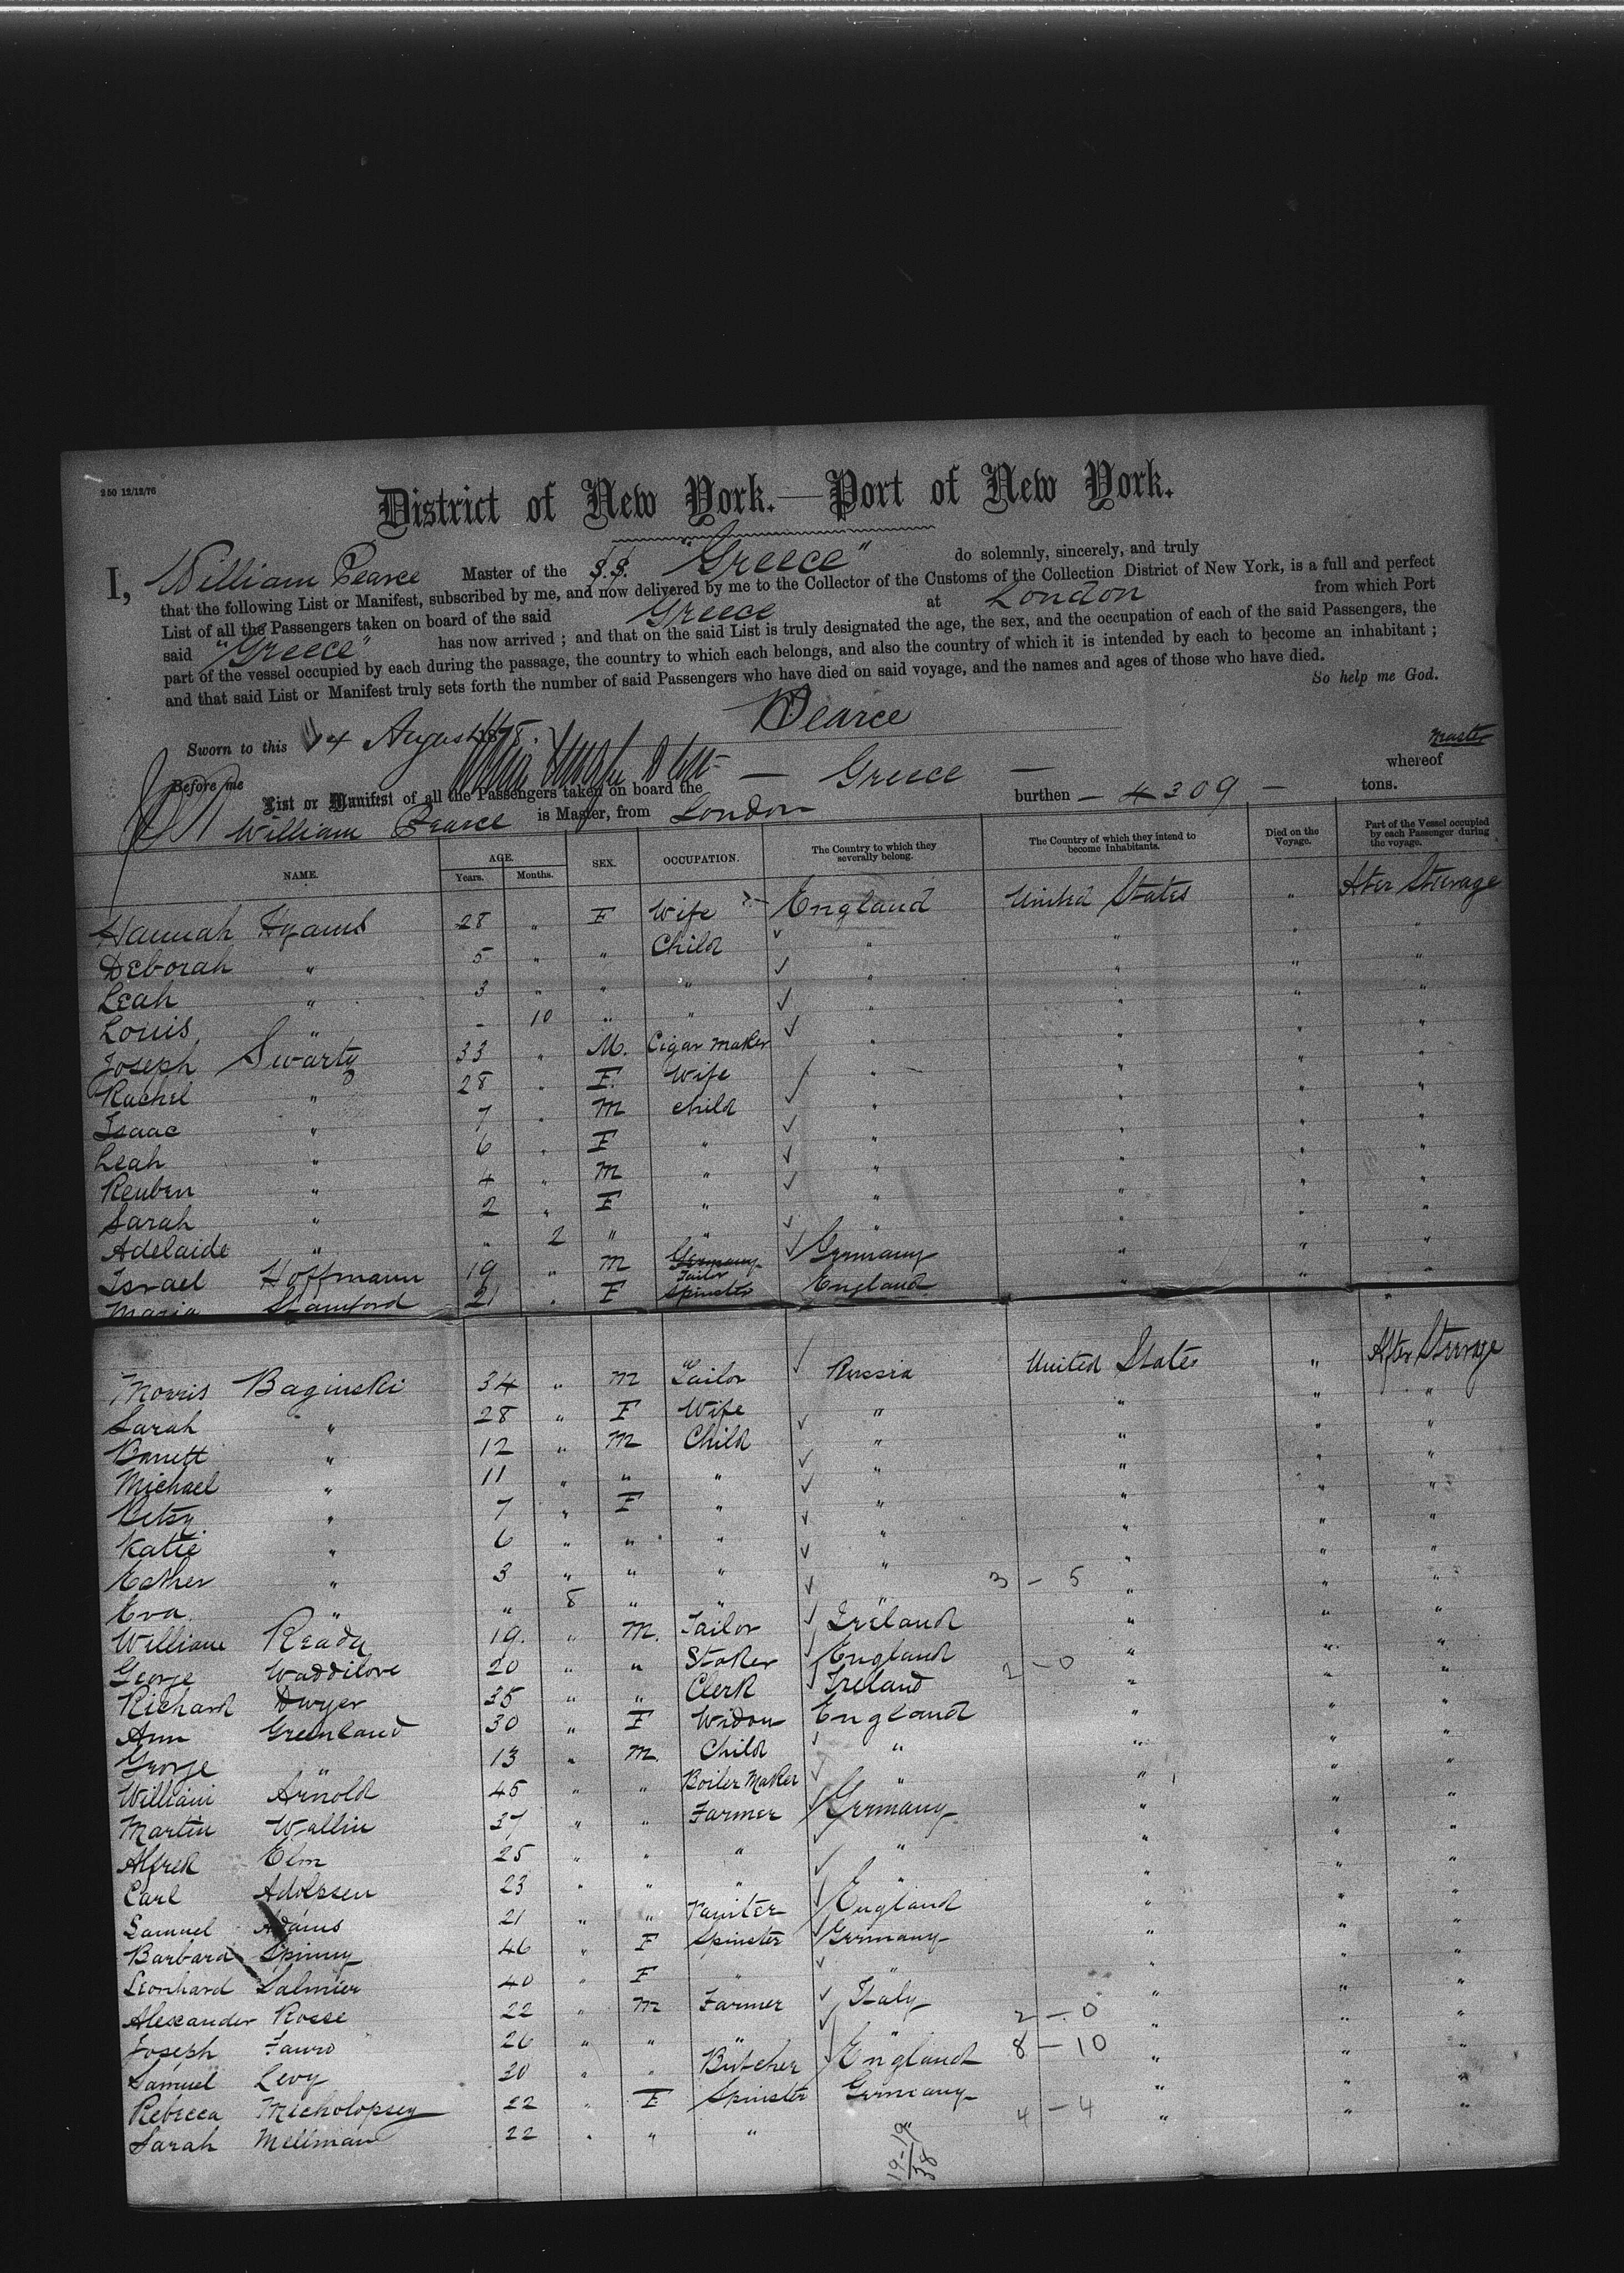 250 12/12/76
District of New York.—Port of New York.
I, William Pearce Master of the S.S. "Greece" do solemnly, sincerely, and truly
that the following List or Manifest, subscribed by me, and now delivered by me to the Collector of the Customs of the Collection District of New York, is a full and perfect
List of all the Passengers taken on board of the said Greece at London from which Port
said "Greece" has now arrived ; and that on the said List is truly designated the age, the sex, and the occupation of each of the said Passengers, the
part of the vessel occupied by each during the passage, the country to which each belongs, and also the country of which it is intended by each to become an inhabitant ;
and that said List or Manifest truly sets forth the number of said Passengers who have died on said voyage, and the names and ages of those who have died.
So help me God.
Sworn to this 14 August 1878. WPearce
Before me
List or Manifest of all the Passengers taken on board the — Greece — Master whereof
William Pearce is Master, from London burthen — 4309 — tons.
NAME. AGE. Years. Months. SEX. OCCUPATION. The Country to which they severally belong. The Country of which they intend to become Inhabitants. Died on the Voyage. Part of the Vessel occupied by each Passenger during the voyage.
Hannah Hyams 28 " F Wife England United States " After Steerage
Deborah " 5 " " Child " " " "
Leah " 3 " " " " " " "
Louis " - 10 " " " " " "
Joseph Swartz 33 " M. Cigar Maker " " " "
Rachel " 28 " F. Wife " " " "
Isaac " 7 " M child " " " "
Leah " 6 " F " " " " "
Reuben " 4 " M " " " " "
Sarah " 2 " F " " " " "
Adelaide " " 2 " " " " " "
Israel Hoffmann 19 " M Germany Tailor Germany " " "
Maria Stamford 21 " F Spinster England " " "
Morris Baginski 34 " M Tailor Russia United States " After Steerage
Sarah " 28 " F Wife " " " "
Barnett " 12 " M Child " " " "
Michael " 11 " " " " " " "
Betsy " 7 " F " " " " "
Katie " 6 " " " " " " "
Esther " 3 " " " " " " "
3 - 5
Eva " " 8 " " " " " "
William Ready 19. " M. Tailor Ireland " " "
George Waddilove 20 " " Stoker England " " "
2 - 0
Richard Dwyer 35 " " Clerk Ireland " " "
Ann Greenland 30 " F Widow England " " "
George " 13 " M. Child " " " "
William Arnold 45 " " Boiler Maker " " " "
Martin Wallin 37 " " Farmer Germany " " "
Alfred Elm 25 " " " " " " "
Carl Adolpsen 23 " " " " " " "
Samuel Adams 21 " " Painter England " " "
Barbara Spinny 46 " F Spinster Germany " " "
Leonhard Salmier 40 " F " " " " "
Alexander Rosse 22 " M Farmer Italy " " "
2 - 0
Joseph Fauro 26 " " " " " " "
8 - 10
Samuel Levy 20 " " Butcher England " " "
Rebecca Micholopsey 22 " F Spinster Germany " " "
4 - 4
Sarah Mellman 22 " " " " " " "
19-19
38